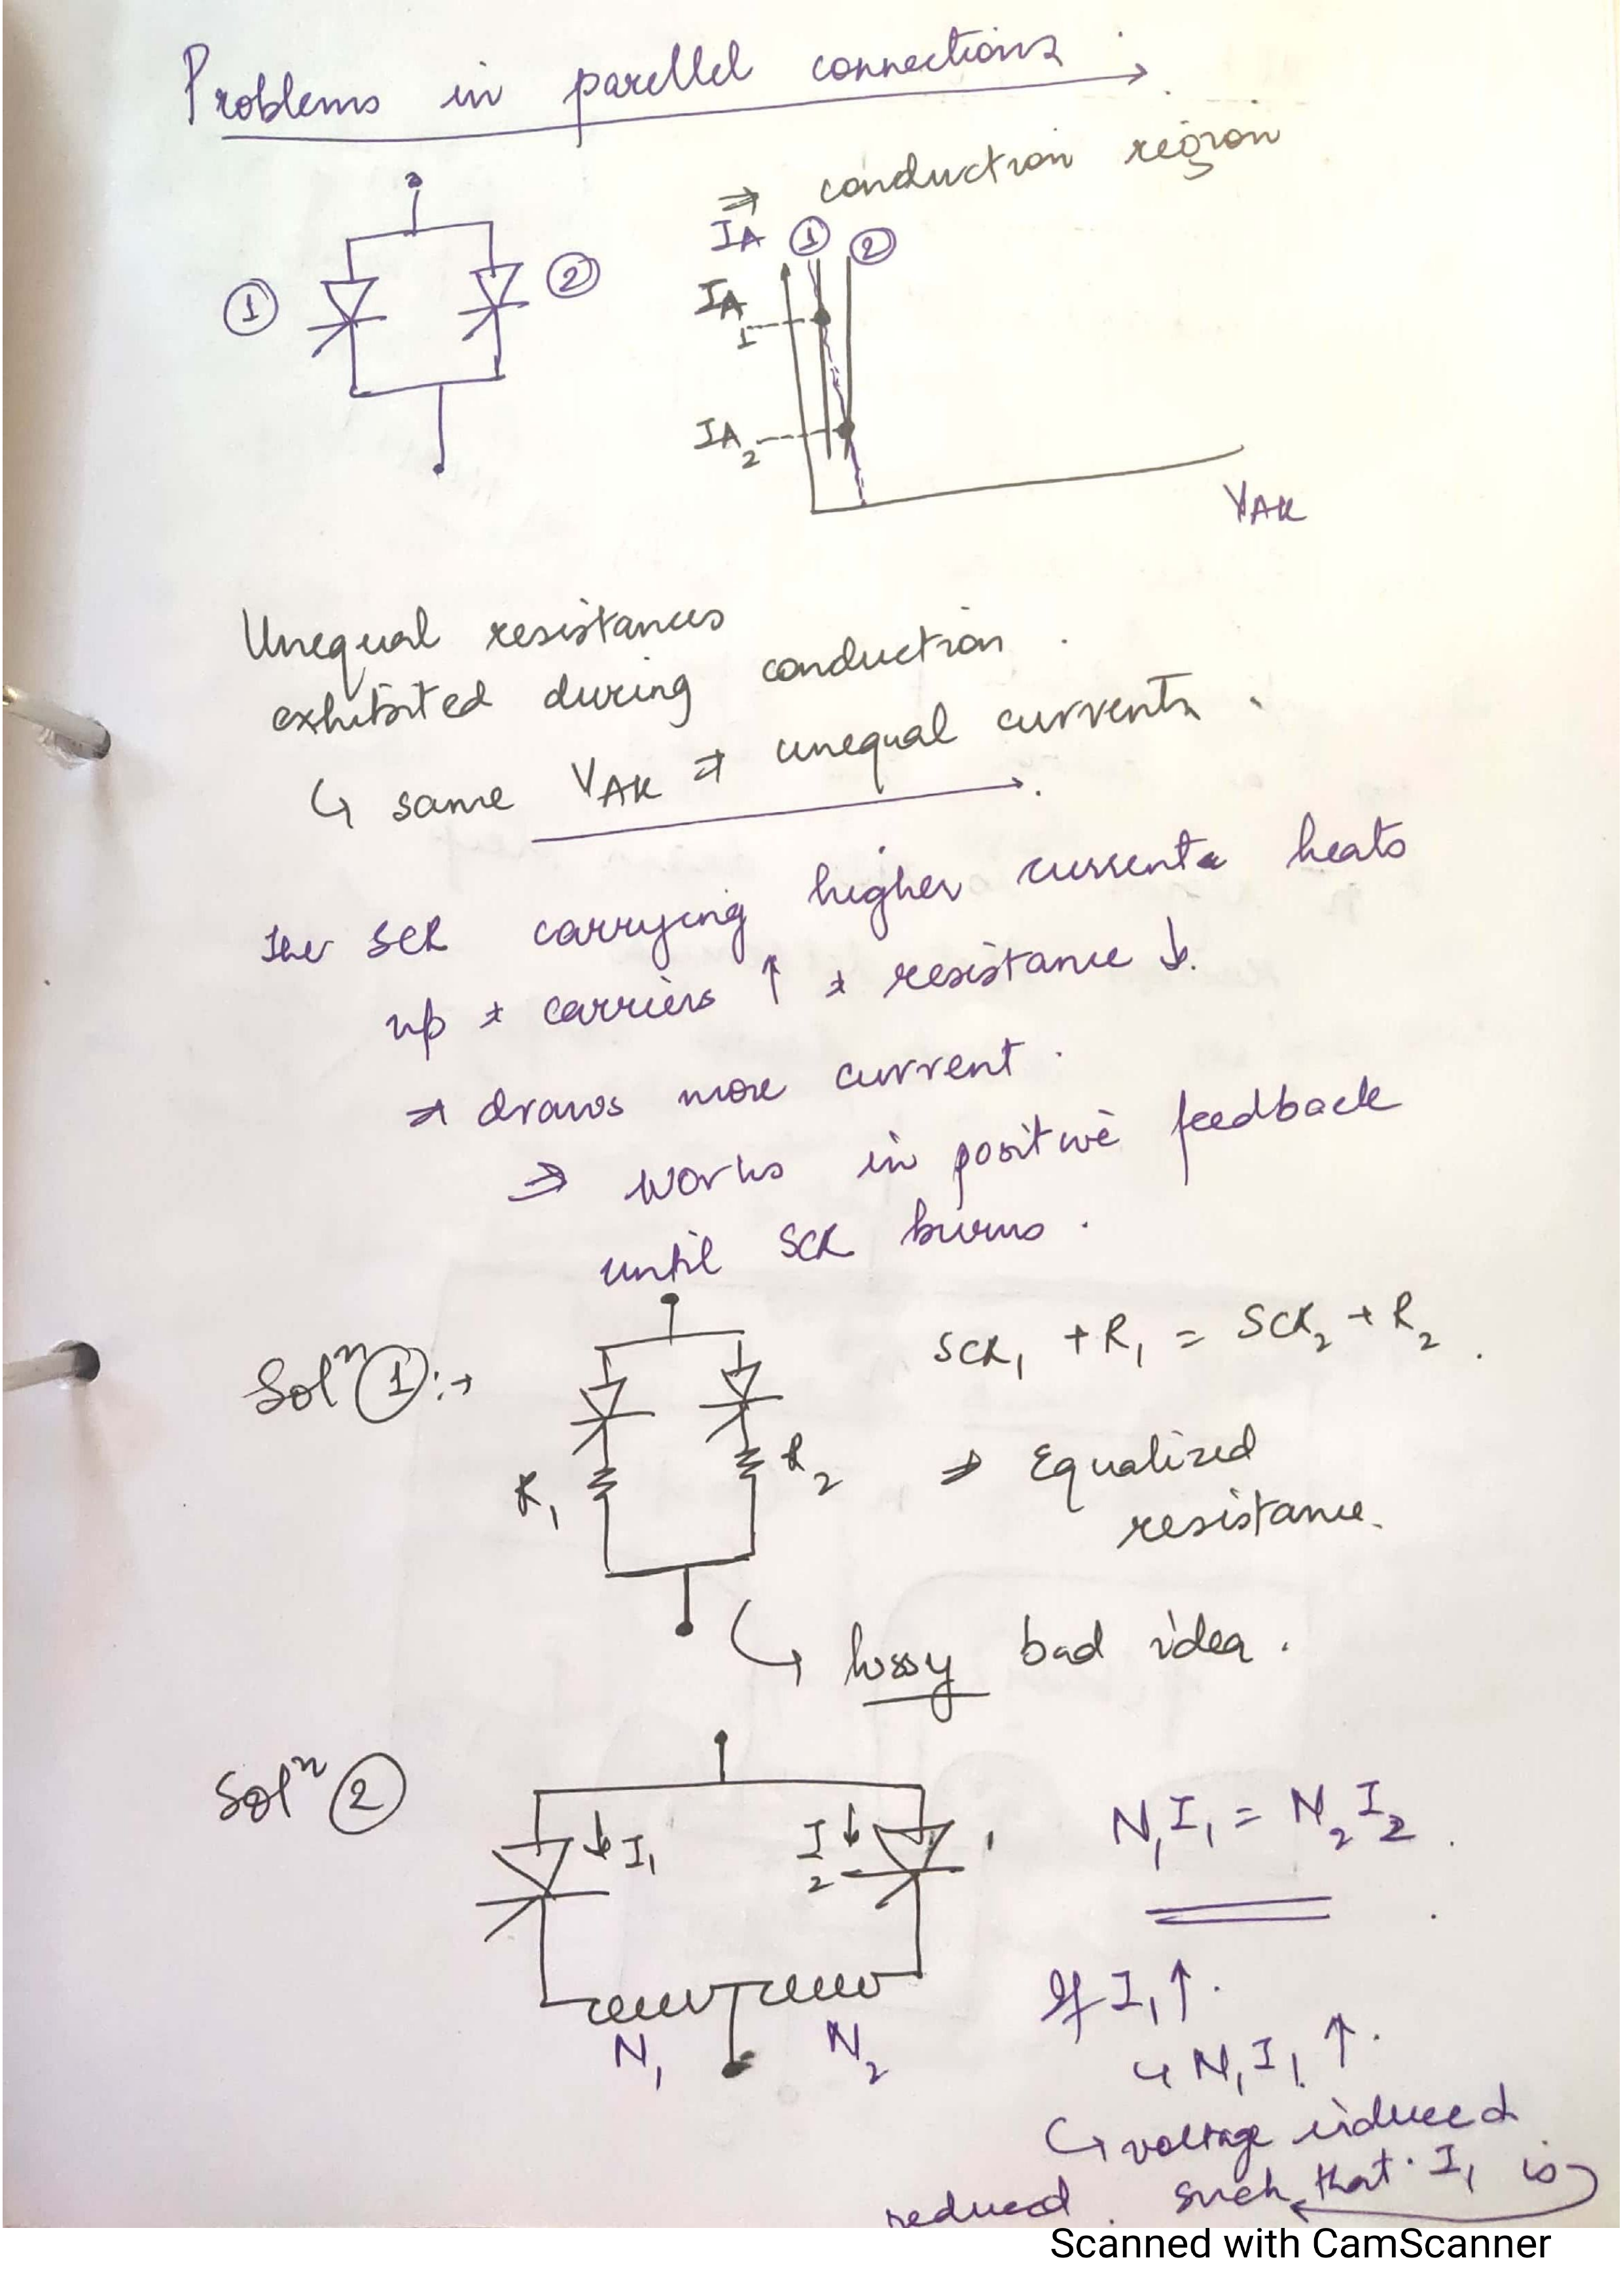 Problems in parellel connections
① ②
⇒ conduction region
IA ① ②
IA1
IA2
VAK
Unequal resistances
exhibited during conduction.
↳ same VAK ⇒ unequal currents.
The SCR carrying higher current heats
up ⇒ carriers ↑ ⇒ resistance ↓.
⇒ draws more current.
⇒ works in positive feedback
until SCR burns.
Solⁿ ①:→
SCR1 + R1 = SCR2 + R2.
R1 R2
⇒ Equalized
resistance.
↳ lossy bad idea.
Solⁿ ②
↓I1 I2↓
N1I1 = N2I2.
N1 N2
If I1↑.
↳ N1I1 ↑.
↳ voltage induced
such that I1 is
reduced.
Scanned with CamScanner